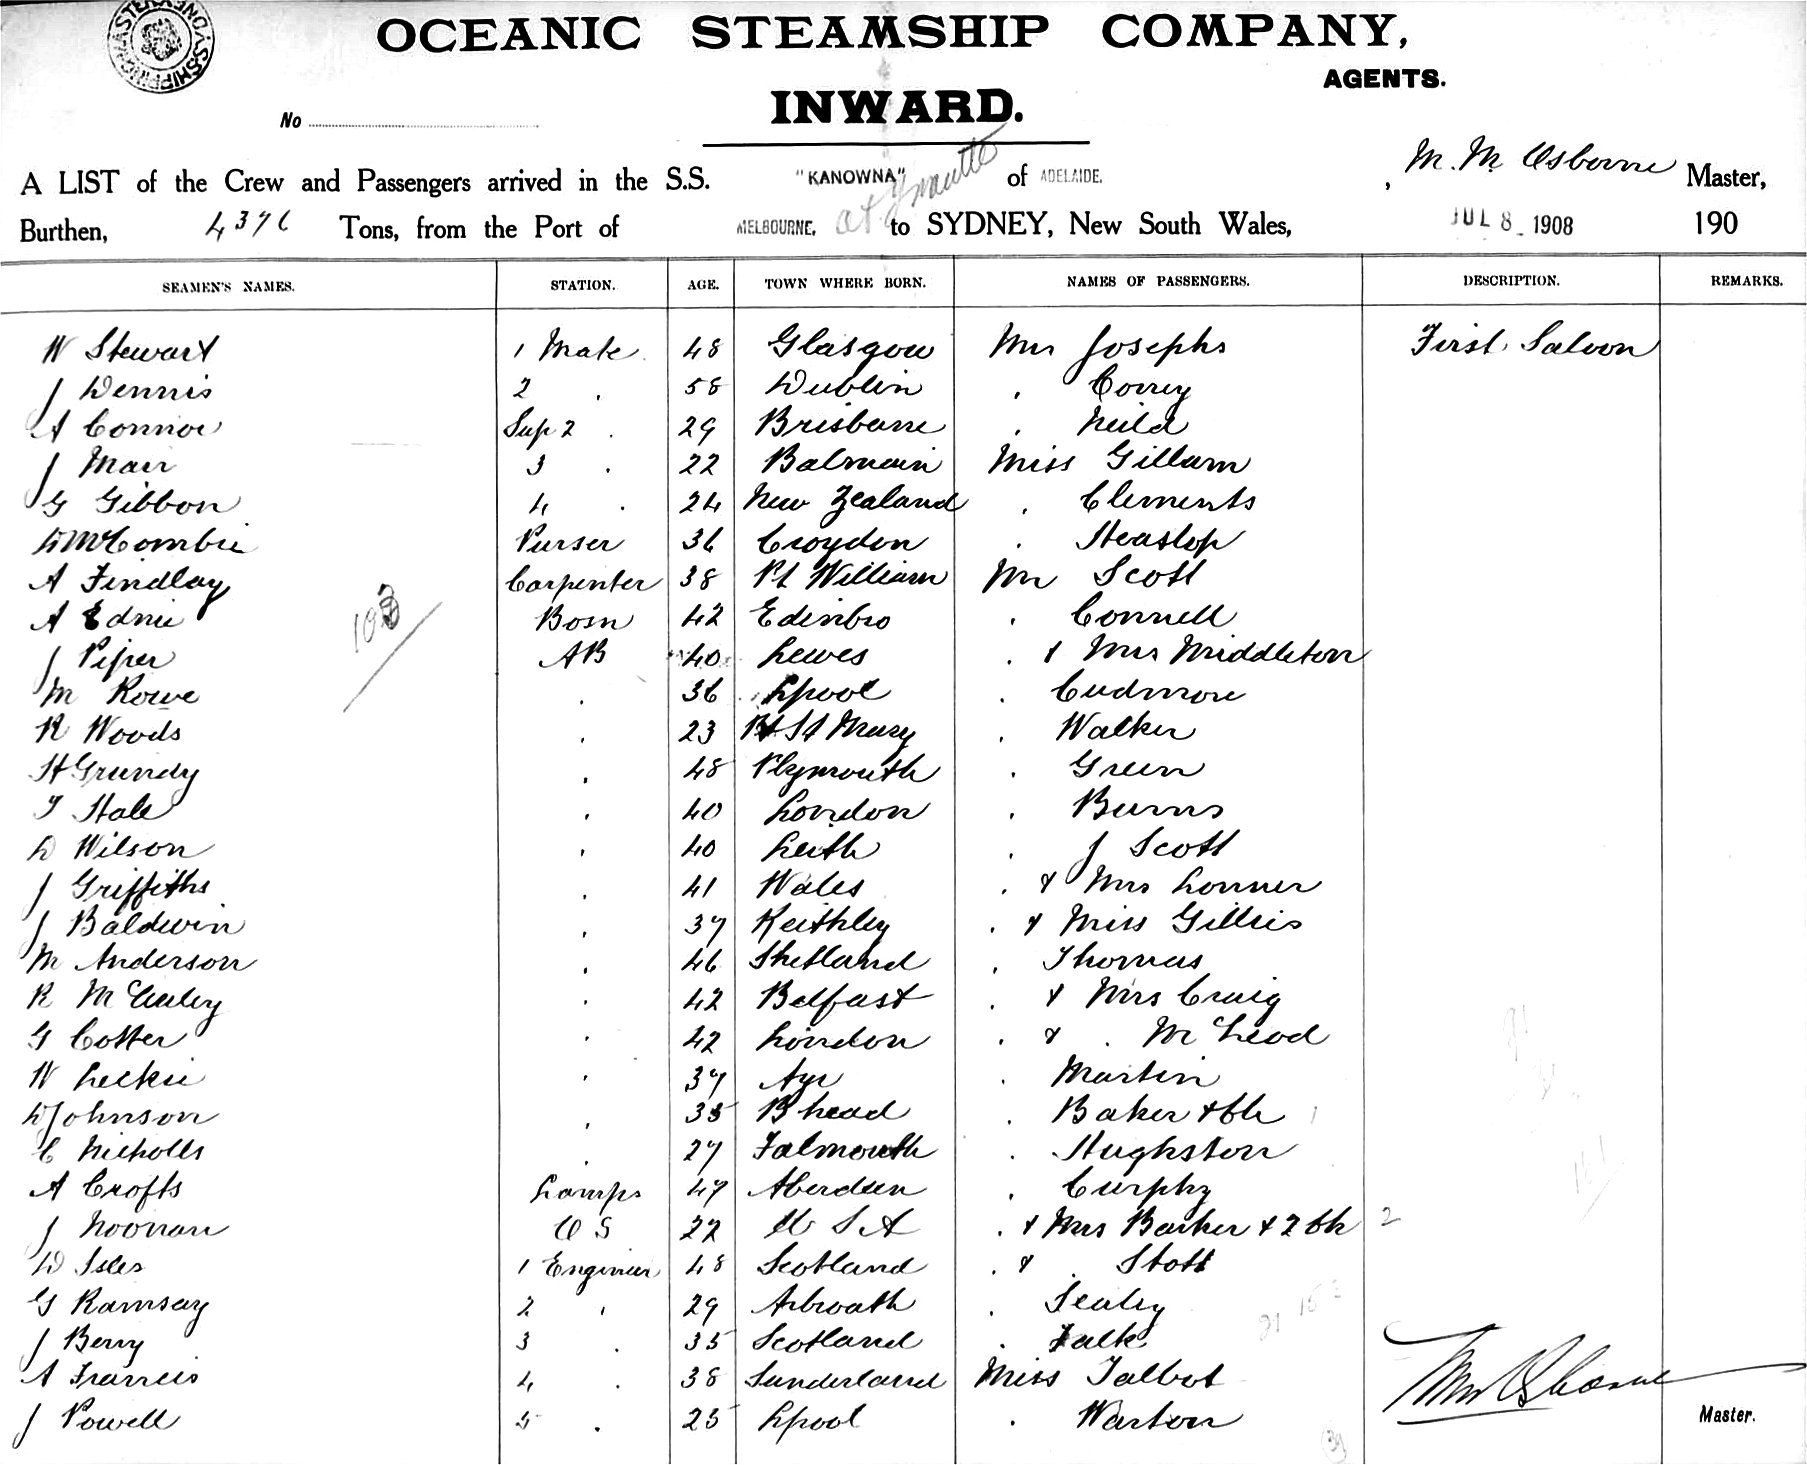 OCEANIC STEAMSHIP COMPANY,
AGENTS.
INWARD.
No
A LIST of the Crew and Passengers arrived in the S.S. "KANOWNA" of ADELAIDE. , M. M. Osborne Master,
Burthen, 4376 Tons, from the Port of MELBOURNE, at to SYDNEY, New South Wales, JUL 8 1908 190
SEAMEN'S NAMES. STATION. AGE. TOWN WHERE BORN. NAMES OF PASSENGERS. DESCRIPTION. REMARKS.
W Stewart 1 Mate 48 Glasgow Mrs Josephs First Saloon
J Dennis 2 . 58 Dublin . Correy
A Connor Sup 2 . 29 Brisbane . Neild
J Mair 3 . 22 Balmain Miss Gillam
G Gibbon 4 . 24 New Zealand . Clements
D McCombie Purser 36 Croydon . Heaslop
A Findlay Carpenter 38 Pt William Mr Scott
A Ednie Bosn 42 Edinbro . Connell
103
J Piper AB 40 Lewes . & Mrs Middleton
M Rowe . 36 Lpool . Cudmore
R Woods . 23 Pt St Mary . Walker
H Grundy . 48 Plymouth . Green
T Hale . 40 London . Burns
D Wilson . 40 Leith . J Scott
J Griffiths . 41 Wales . & Mrs Lonner
J Baldwin . 37 Keithley . & Miss Gillies
M Anderson . 46 Shetland . Thomas
R McCauley . 42 Belfast . & Mrs Craig
G Cotter . 42 London . & . McLeod
W Leckie . 37 Ayr . Martin
D Johnson 35 B head . Baker & Ch 1
C Nicholls . 27 Falmouth . Hughston
A Crofts Lamps 47 Aberdeen . Curphy
J Noonan O S 22 U S A . & Mrs Barker & 2 Ch 2
D Isles 1 Engineer 48 Scotland . & . Stott
G Ramsay 2 . 29 Arbroath . Sealey
J Berry 3 . 35 Scotland . Falk
A Francis 4 . 38 Sunderland Miss Talbot
J Powell 5 . 25 Lpool . Warton
MM Osborne
Master.